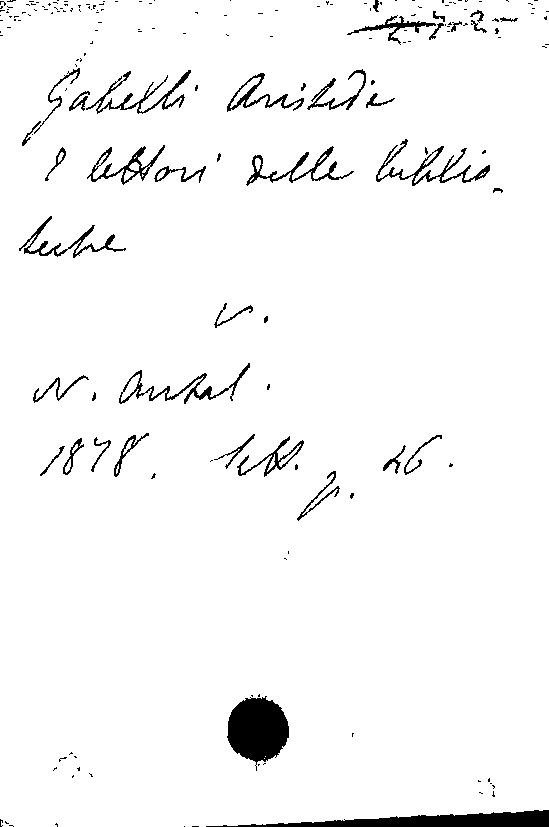 2.7.2.-
Gabelli Aristide
I lettori delle biblio-
teche
v.
N. Antol.
1878. Sett. p. 26.